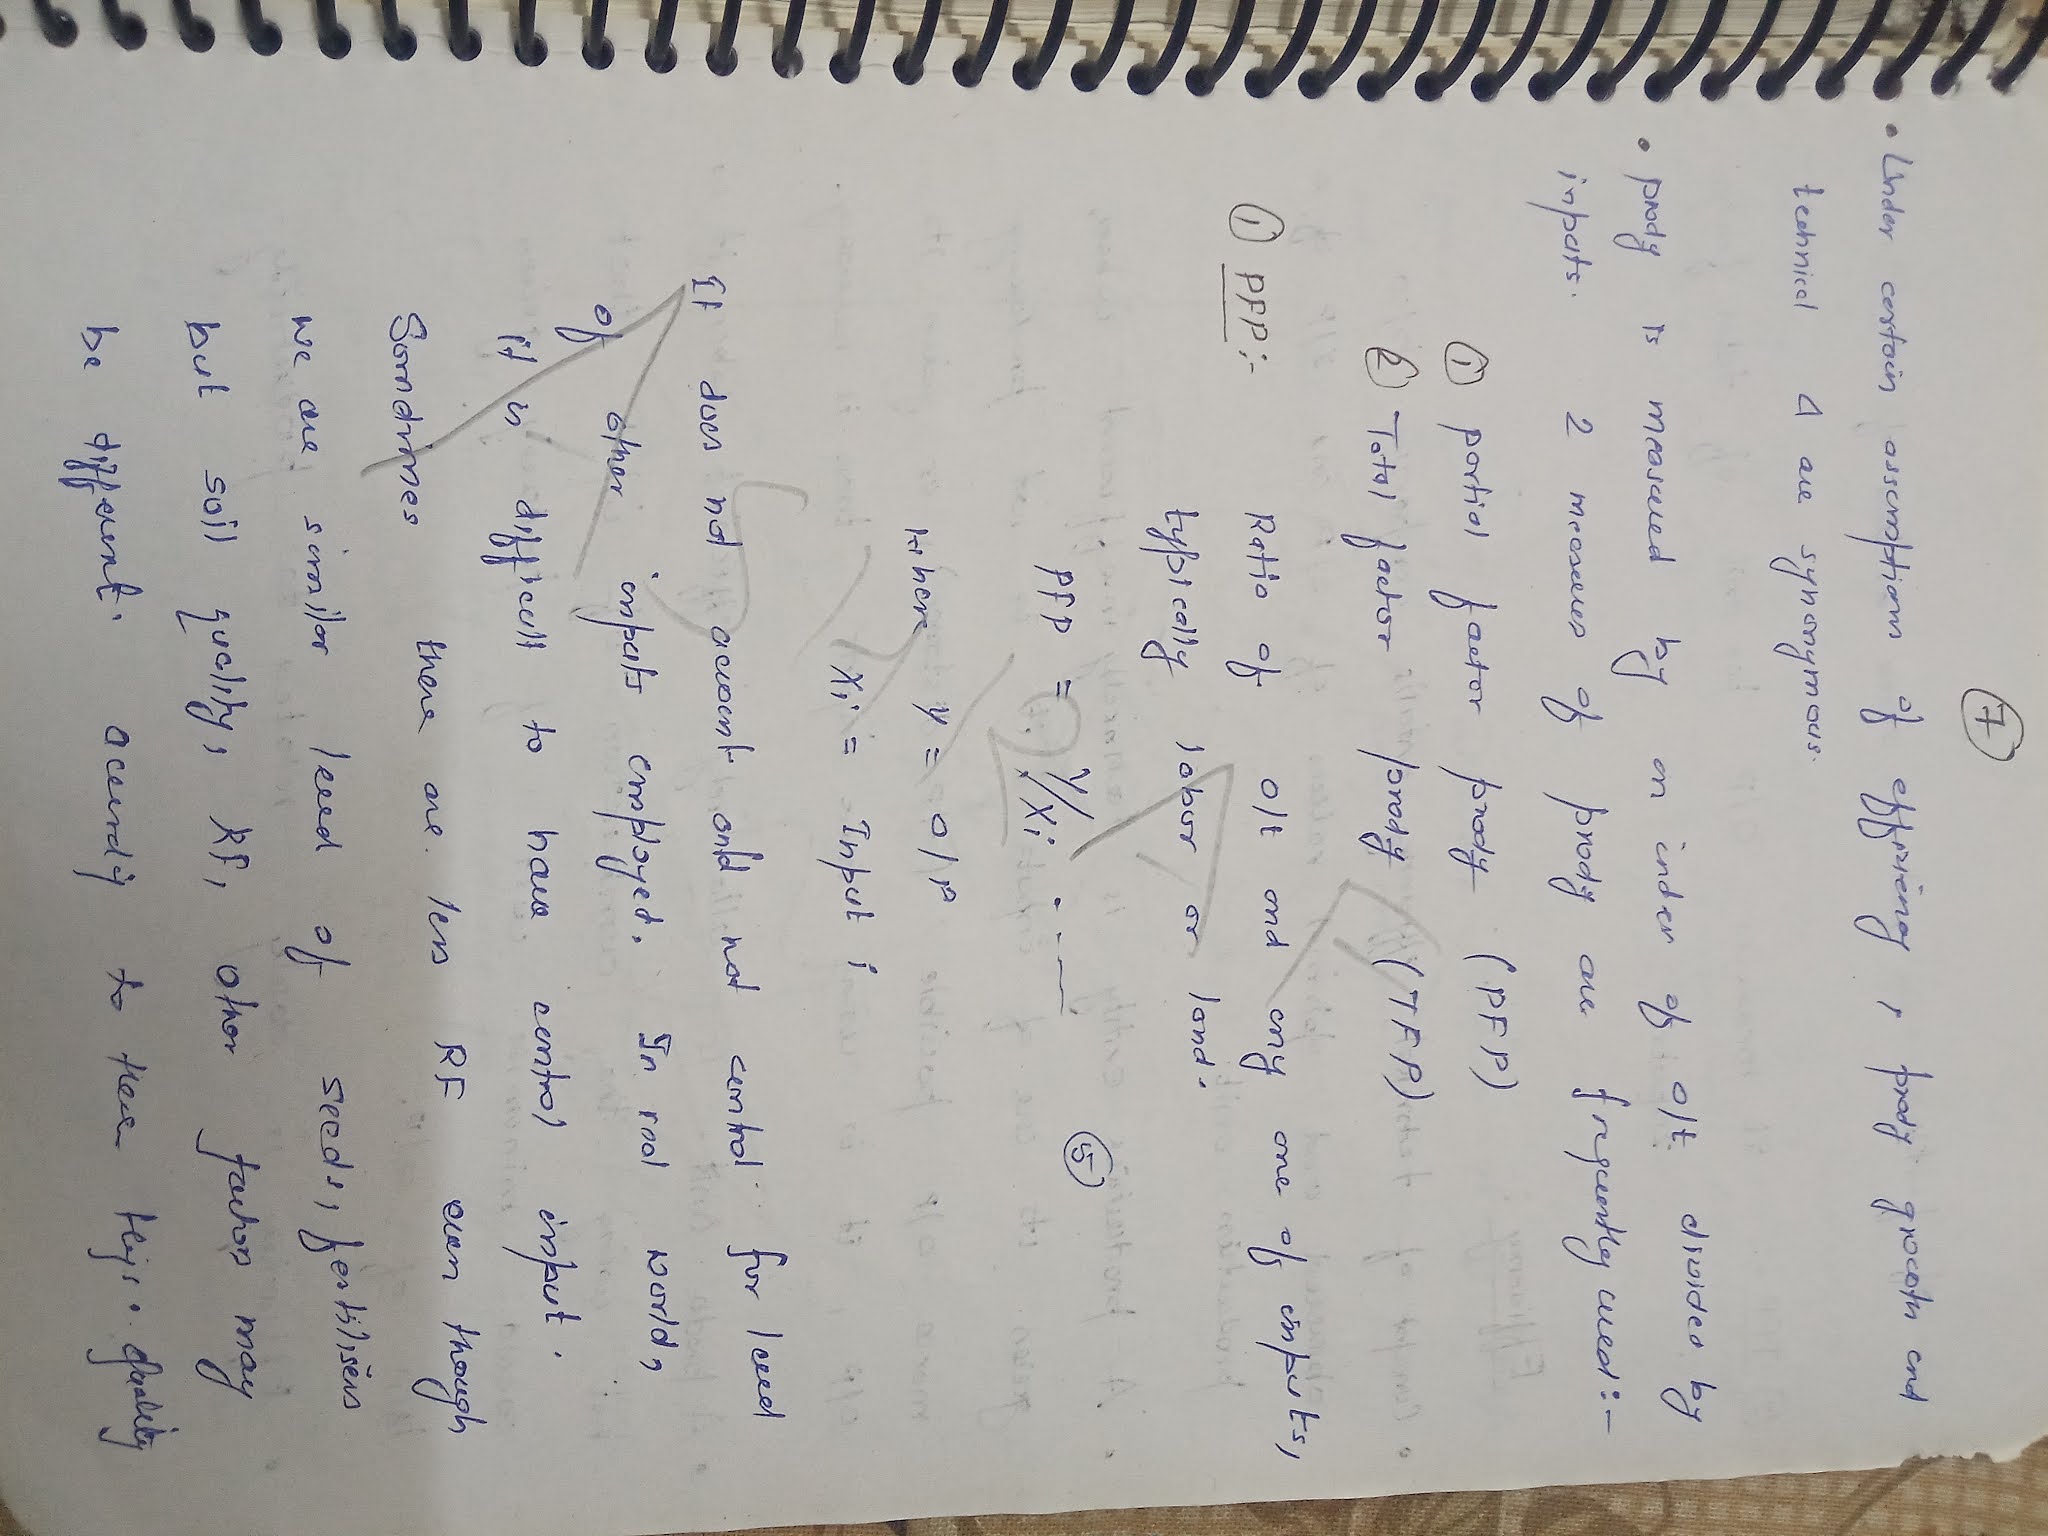 7
• Under certain assumptions of efficiency, prody growth and
technical Δ are synonymous.
• prody is measured by an index of o/t divided by
inputs. 2 measures of prody are frequently used:-
① partial factor prody (PFP)
② Total factor prody (TFP)
① PFP:-
Ratio of o/t and any one of inputs,
typically labour or land.
PFP = Y/Xi . - — ⑤
where Y = O/P
Xi = Input i
It does not account and not control for level
of other inputs employed. In real world,
it is difficult to have control input.
Sometimes there are less RF even though
we are similar level of seeds, fertilisers
but soil quality, RF, other factors may
be different. to their quality